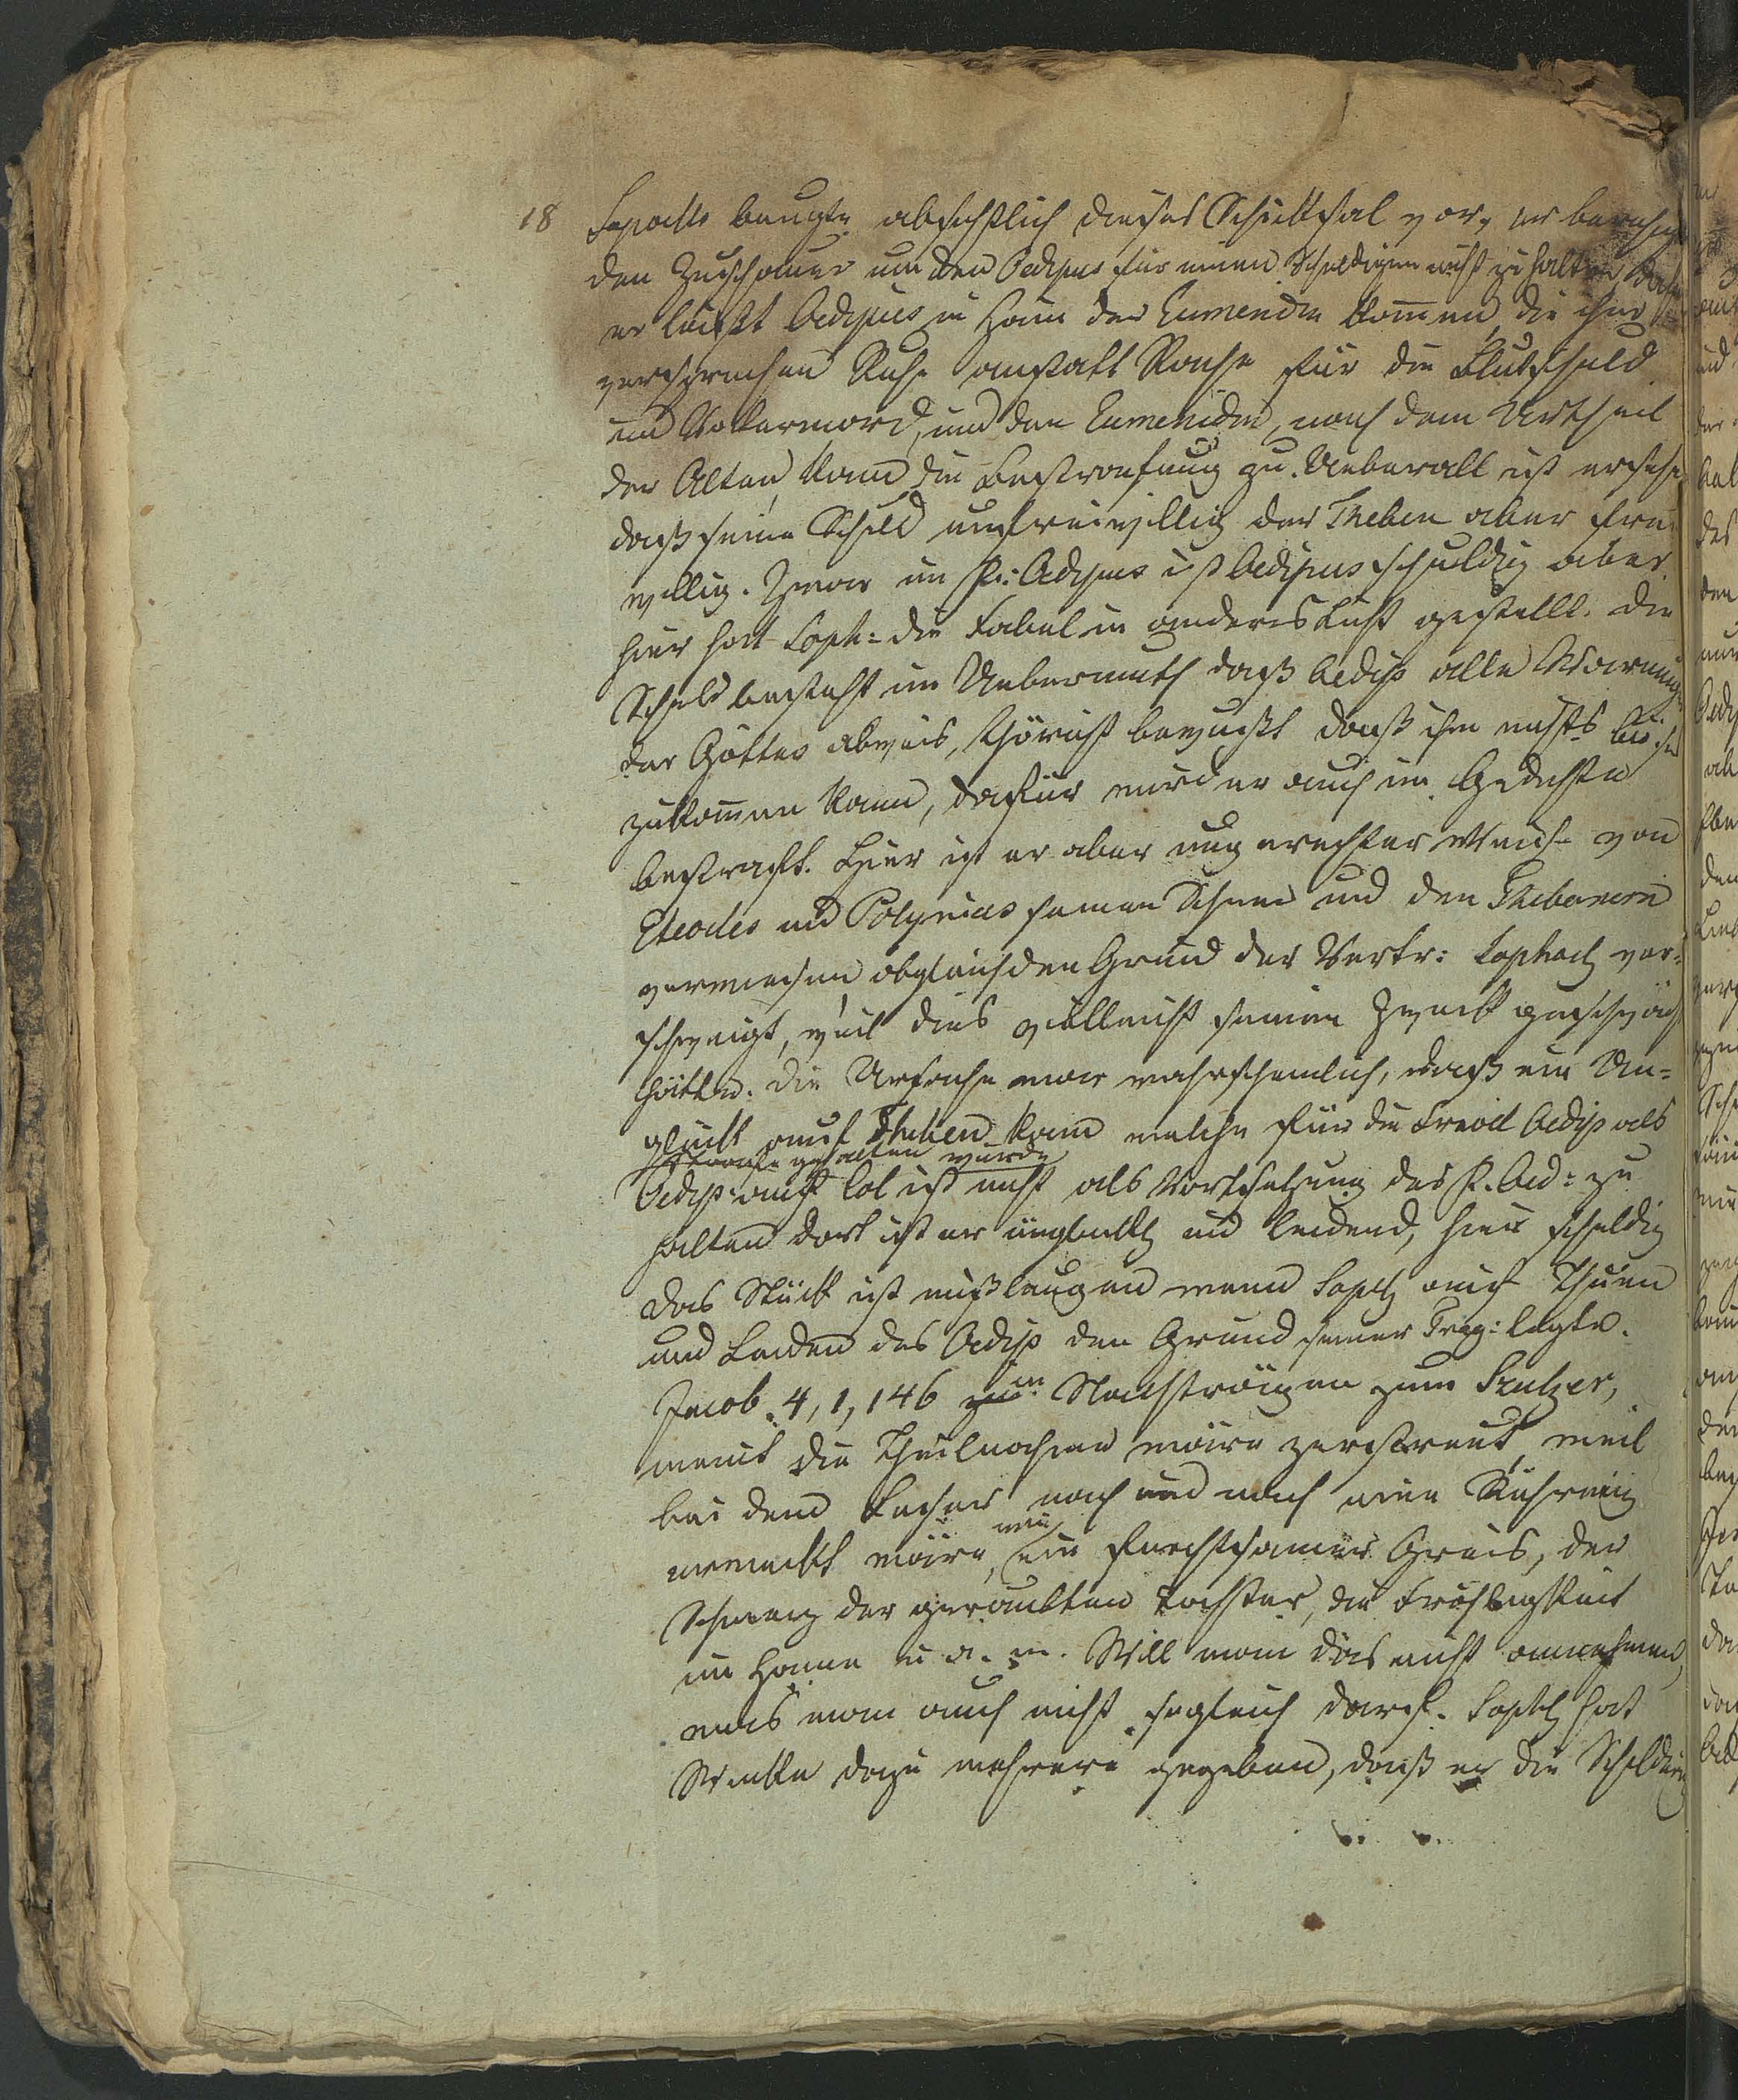 18 Sophocles beugte absichtlich dieses Schicksal vor, er
den Zuschauer um den Oedipus für einen Schuldigen nicht zu halten
er läsßt Oedipus in Hain der Eumeniden kommen, die ihm
versprechen Ruhe anstatt Rache für die Blutschuld
und Vatermord, und den Eumeniden, nach dem Urtheil
der Alten, kam die Bestrafung zu. Ueberall ist
daß seine Schuld unfreiwillig der Theben aber frei
willig. Zwar im R: Oedipus ist Oedipus schuldig aber
hier hat Soph: die Fabel in anderes Licht gestellt. Die
Schuld besteht im Uebermuth daß Oedip alle Warnung
der Götter abweis, thöricht bewußt daß ihm nichts
zukommen kann, dafür wird er auch im Gedichte
bestraft. Hier ist er aber ungerechter Weise von
Eteocles und Polynices seinen Sohnen und den Thebanern
verwiesen obgleich den Grund der Vertr: Sophocl ver-
schweigt, weil dies vielleicht seinen Zweck geschwäch
hätte. Die Ursache war wahrscheinlich, daß ein Un-
glück auf Theben kam welche für die Oedip als
Strafe gehalten wurde
Oedip: auf Col ist nicht als Vortsetzung des R. Oed: zu
halten dort ist er unglückl und leidend, hier schuldig
das Stück ist mißlungen wenn Sophl auf Thuen
und Leiden des Oedip den Grund seiner Trag: legte.
Jacob. 4, 1, 146 in Nachträgen zum Sulzer,
meint die Theilnahme wäre zerstreut, weil
bei dem Leser nach und nach eine Rührung
erweckt wäre, wie ein furchtsamer Greis, der
Schmerz der geraubten Tochter, die
im Haine u a. m. Will man dies nicht annehmen,
was man auch nicht sogleich darf. Sophl hat
Winke dazu mehrere gegeben, daß er die